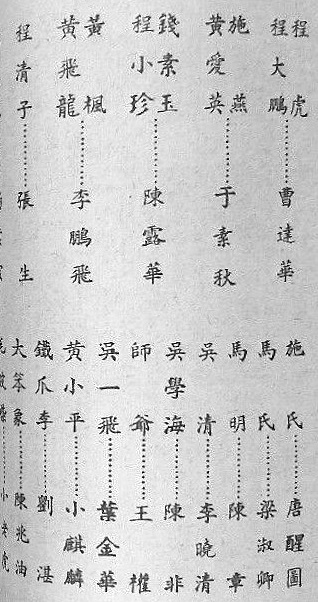 程虎
程大鵬………曹達華
施燕
黃愛英………于素秋
錢素玉
程小珍………陳露華
黃楓
黃飛龍………李鵬飛
程清子………張生
施氏………唐醒圖
馬氏………梁淑卿
馬明………陳章
吳清………李曉清
吳學海………陳非
師爺………王櫂
吳一飛………葉金華
黃小平………小麒麟
鐵爪李………劉湛
大笨象………陳兆油
小老虎